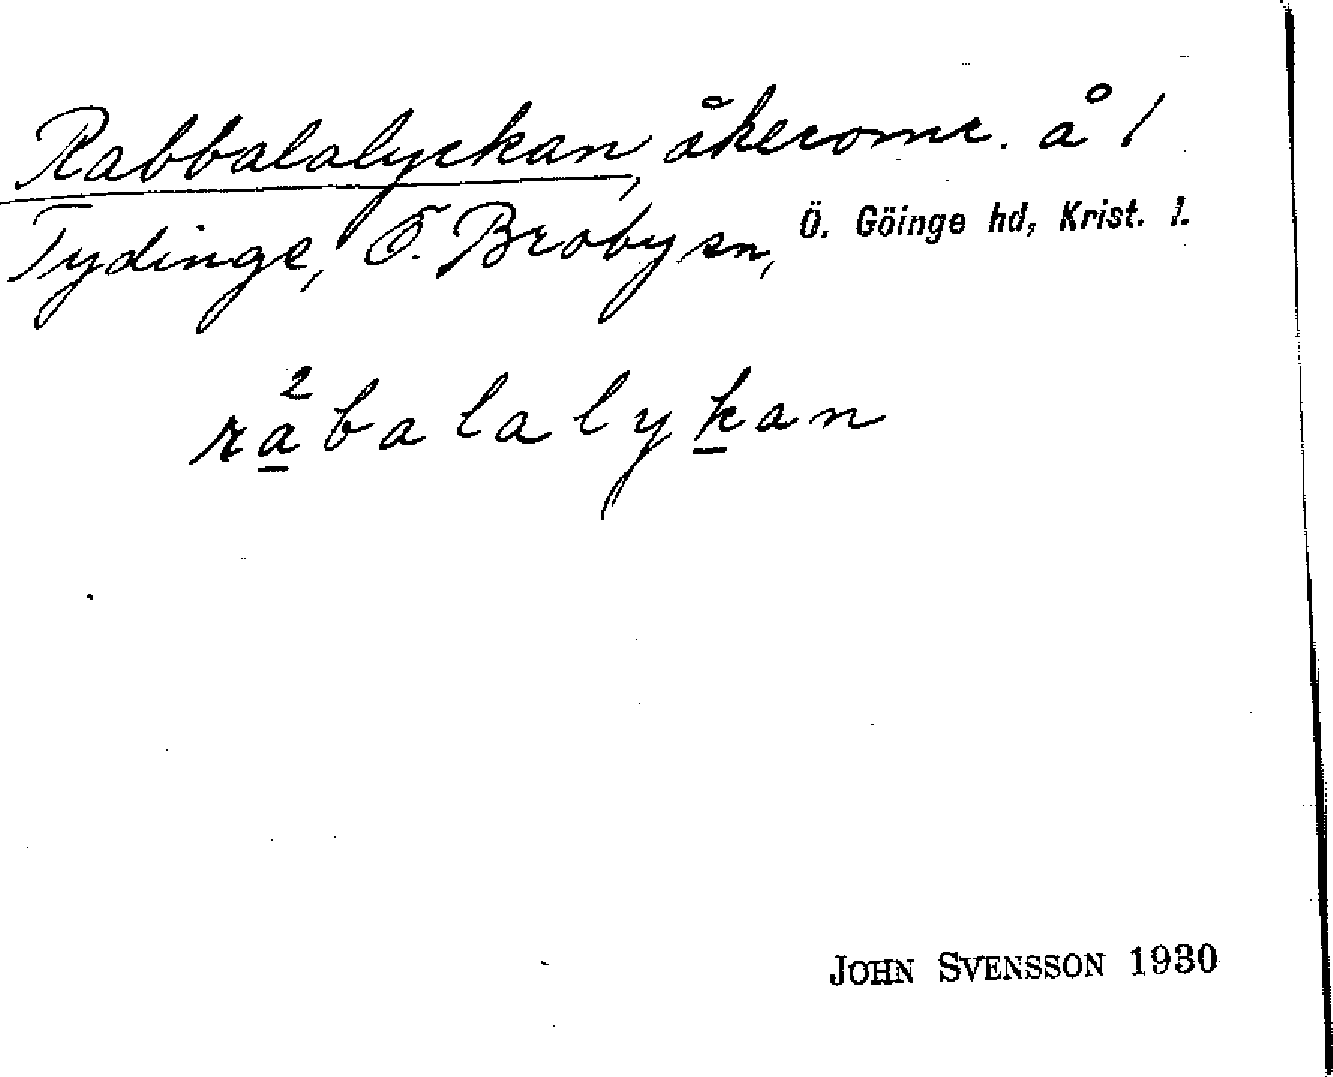 Rabbalalyckan, åkeromr. å 1
Tydinge, Ö. Broby sn, Ö. Göinge hd, Krist. l.
ra²balalykan
JOHN SVENSSON 1930